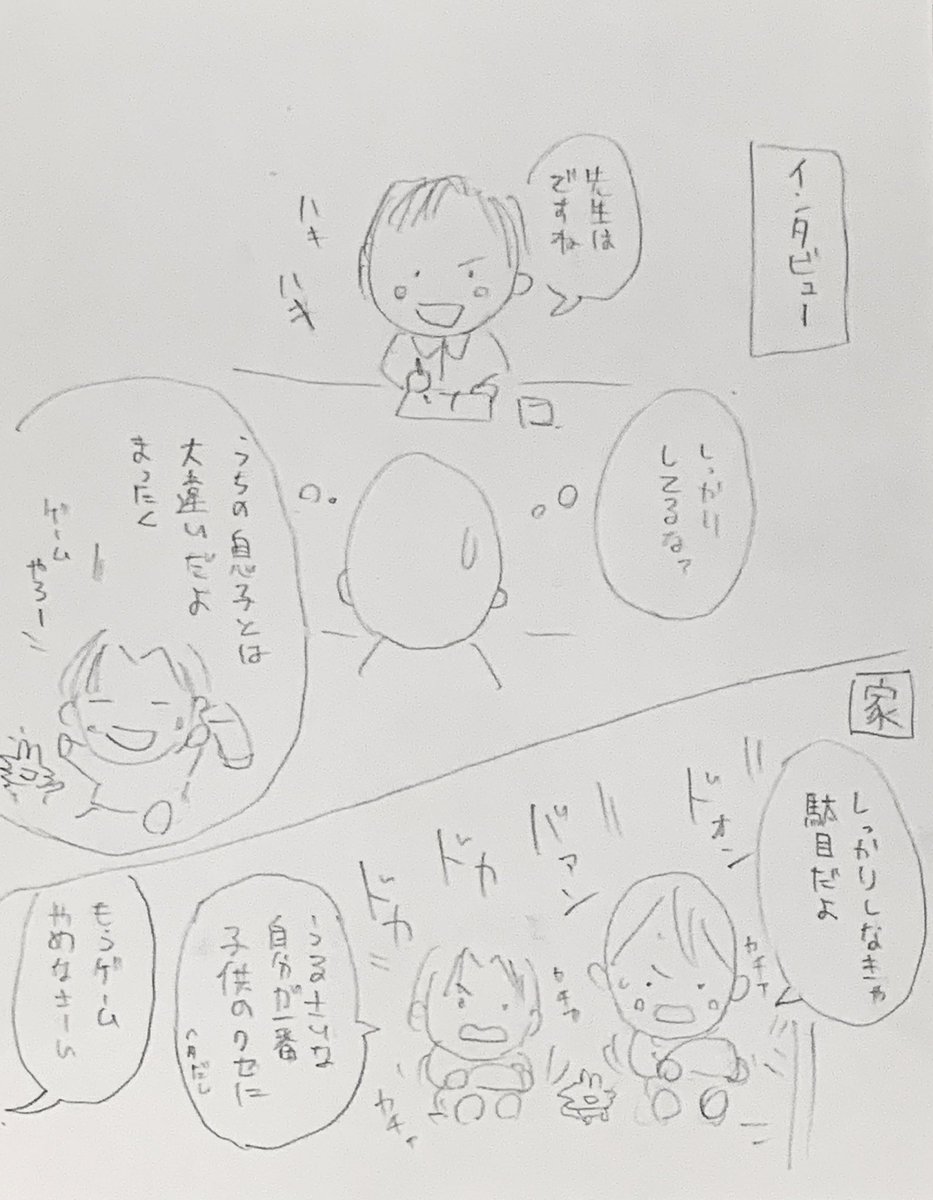 インタビュー
先生は
ですね
ハキ
ハキ
しっかり
してるな?
うちの息子とは
大違いだよ
まったく
ゲーム
やろー
家
しっかりしなきゃ
駄目だよ
ドォン
バァン
ドカ
ドカ
カチャ
カチャ
カチャ
うるさいな
自分が一番
子供のクセに
もうゲーム
やめなさーい